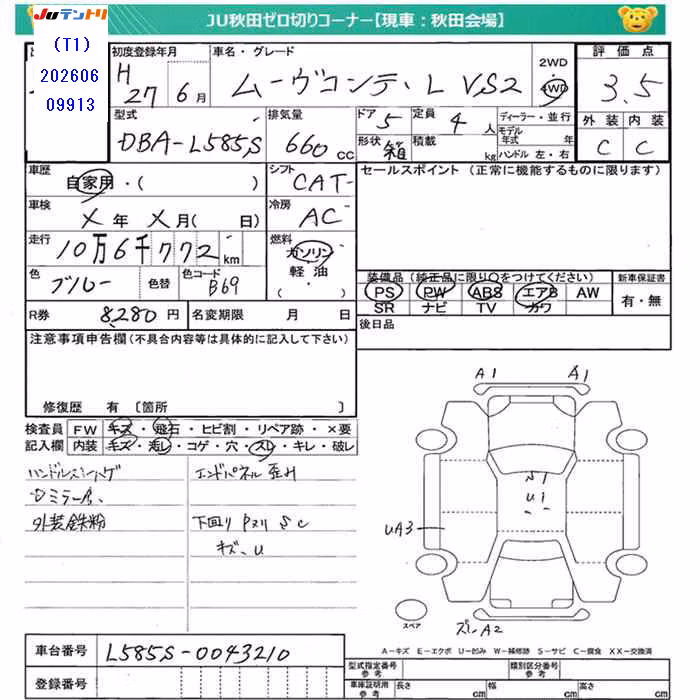 Juテントリ
JU秋田ゼロ切りコーナー【現車：秋田会場】
(T1)
202606
09913
初度登録年月
H
27年6月
車名・グレード
ムーヴコンテ、L VS2
2WD
4WD
評価点
3.5
外装 内装
C C
型式
DBA-L585S
排気量
660cc
ドア
5
定員
4人
形状
箱
積載
kg
ディーラー・並行
モデル年式 年
ハンドル 左・右
車歴
自家用・( )
シフト
CAT
セールスポイント (正常に機能するものに限ります)
車検
X年X月( 日)
冷房
AC
走行
10万6千772km
燃料
ガソリン
軽油
( )
色
ブルー
色替
色コード
B69
装備品 (純正品に限り○をつけてください)
PS PW ABS エアB AW
SR ナビ TV カワ
新車保証書
有・無
R券
8,280円
名変期限 月 日
後日品
注意事項申告欄 (不具合内容等は具体的に記入して下さい)
修復歴 有 〔箇所 〕
検査員
記入欄
FW キズ・飛石・ヒビ割・リペア跡・×要
内装 キズ・汚レ・コゲ・穴・スレ・キレ・破レ
エンドパネル歪み
外装鉄粉
下回り Pヌリ SC
キズ、U
A1
A1
S1
U1
UA3
A2
スペア
A－キズ E－エクボ U－凹み W－補修跡 S－サビ C－腐食 XX－交換済
車台番号
L585S-0043210
登録番号
型式指定番号
参考
類別区分番号
参考
車庫証明用
参考
長さ cm
幅 cm
高さ cm